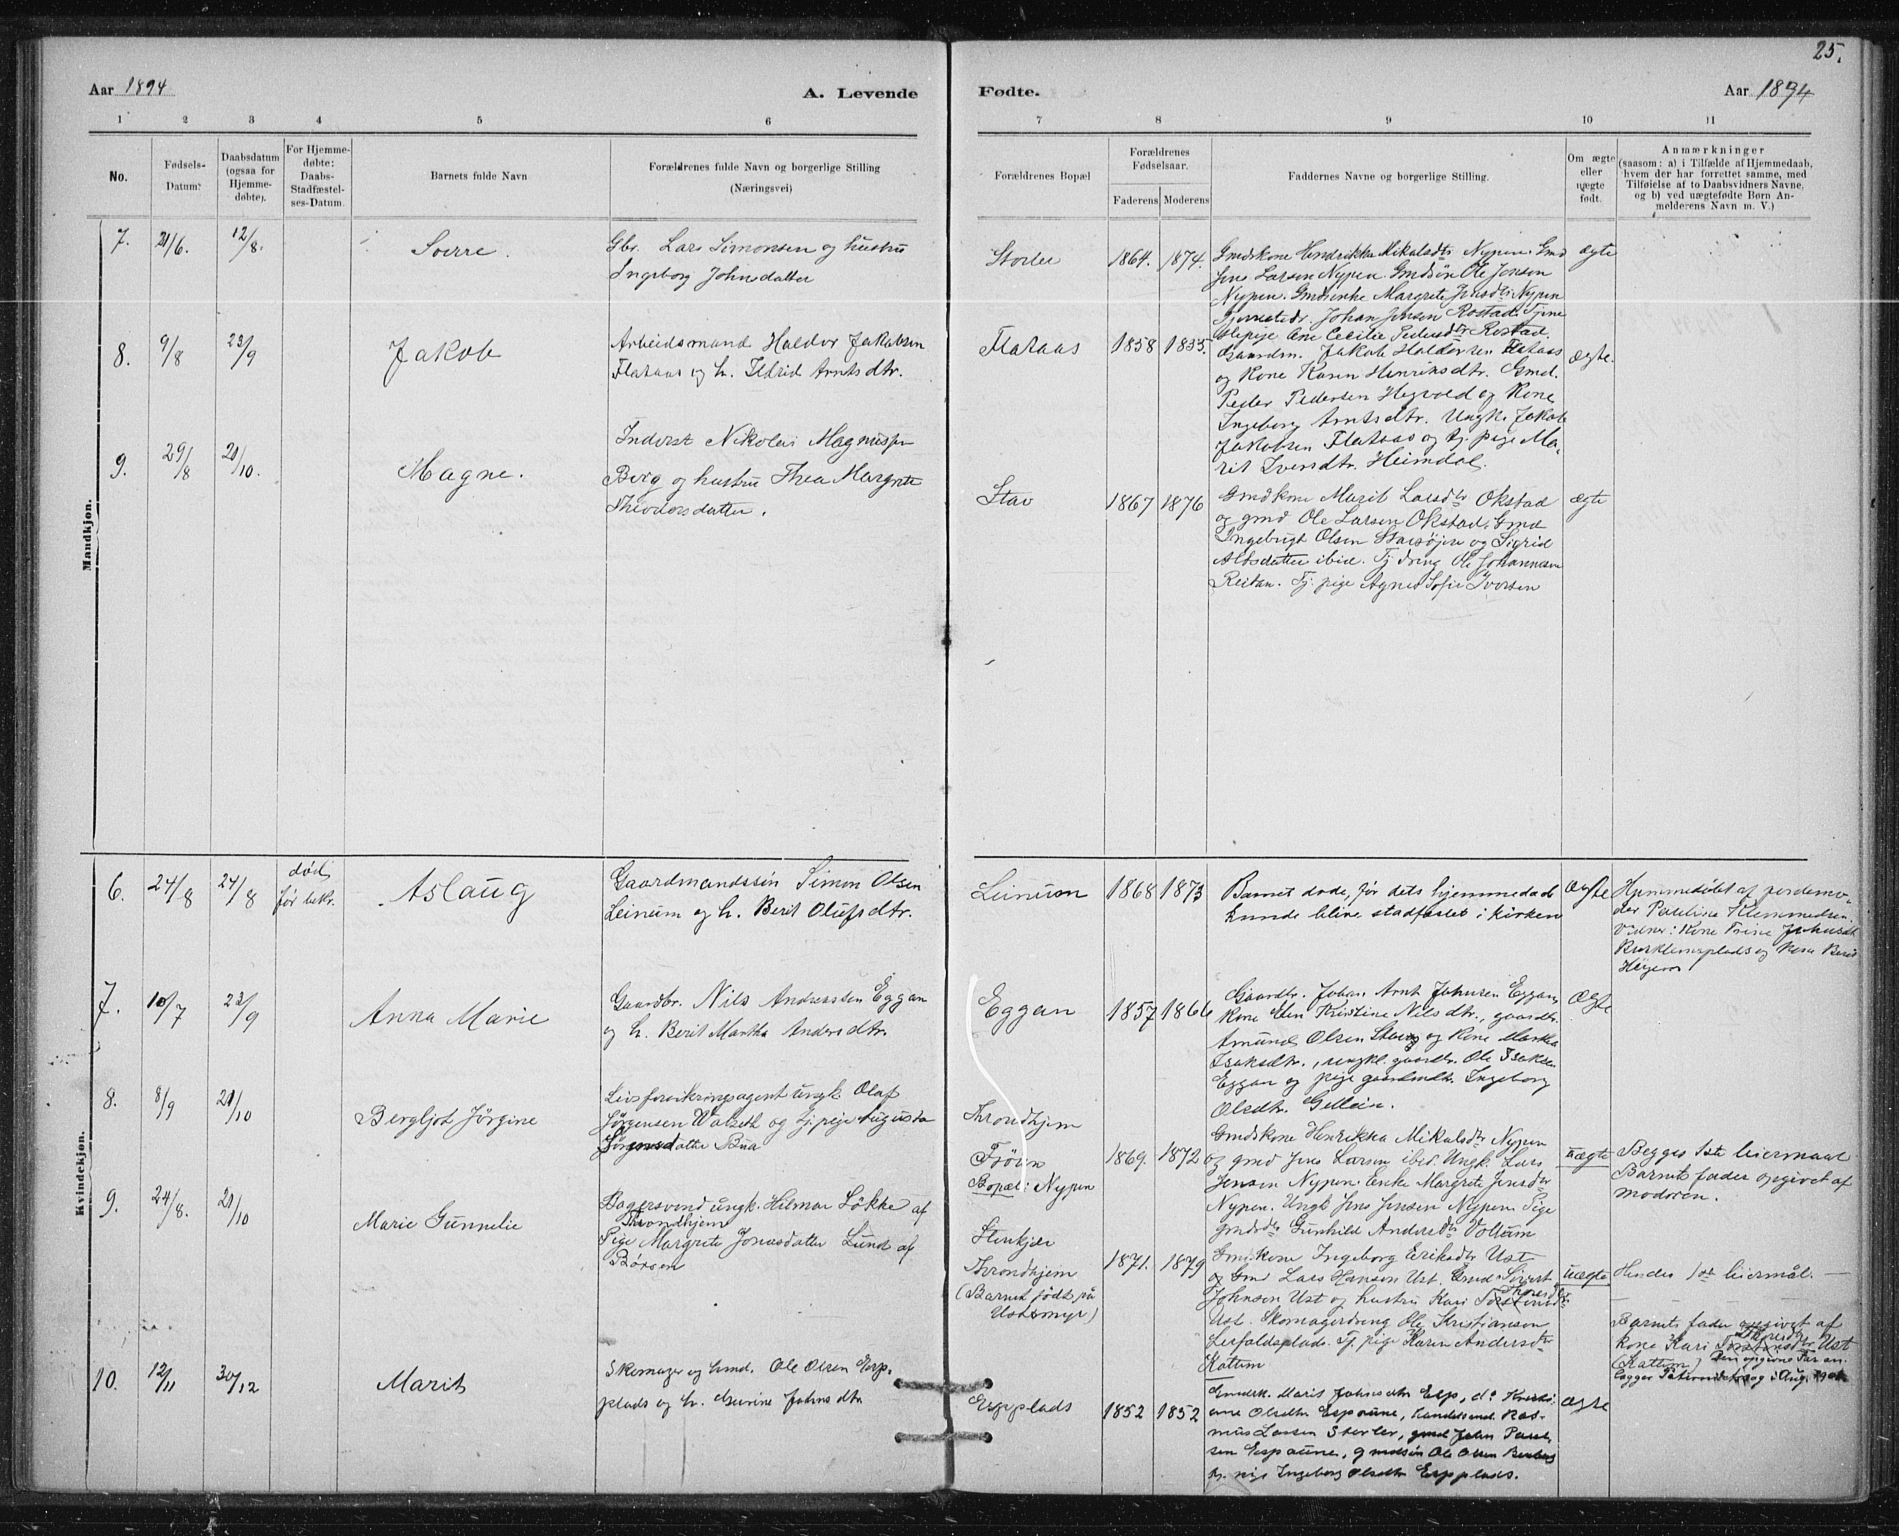 25.
Aar 1894
A. Levende
Fødte.
Aar 1894
1 2 3 4 5 6 7 8 9 10 11
No.
Fødsels-
Datum.
Daabsdatum
(ogsaa for
Hjemme-
døbte).
For Hjemme-
døbte:
Daabs-
Stadfæstel-
ses-Datum.
Barnets fulde Navn
Forældrenes fulde Navn og borgerlige Stilling
(Næringsvei)
Forældrenes Bopæl
Forældrenes
Fødselsaar.
Faderens Moderens
Faddernes Navne og borgerlige Stilling.
Om ægte
eller
uægte
født.
Anmærkninger
(saasom: a) i Tilfælde af Hjemmedaab,
hvem der har forrettet samme, med
Tilføielse af to Daabsvidners Navne,
og b) ved uægtefødte Børn An-
melderens Navn m. V.)
Mandkjøn.
7. 21/6. 12/8. Sverre.
Gbr. Lars Simonsen og hustru
Ingeborg Johnsdatter
Storler 1864. 1874.
Gmdskone Hendrikka Mikalsdtr Nypen. Gmd
Jens Larsen Nypen. Gmdsøn Ole Jensen
Nypen. Gmdsenke Margrete Jensdtr Nypen
Johan Jensen Rostad. Tjene
stepige Ane Cecilie Pedersdtr Rostad.
ægte
8. 9/8 23/9 Jakob
Arbeidsmand Haldor Jakobsen
Flataas og h. Ildrid Arntsdtr.
Flataas 1858 1855.
Gaardm. Jakob Haldorsen Flataas
og Kone Karen Henriksdtr. Gmd.
Peder Pedersen Hegvold og Kone
Ingeborg Arntsdtr. Ungk. Jakob
Jakobsen Flataas og tj. pige Ma-
rit Iversdtr. Heimdal.
ægte.
9. 29/8 21/10. Magne.
Inderst Nikolai Magnussen
Berg og hustru Thea Margrete
Theodorsdatter.
Stav 1867 1876
Gmdkone Marit Larsdtr Okstad
og gmd Ole Larsen Okstad. Gmd
Ingebrigt Olsen og Sigrid
ibid. Tj. dreng Ole Johannesen
Reitan. Tj. pige Agnes Sofie Iversen
ægte
Kvindekjøn.
6. 24/8 24/8 død
før bekr.
Aslaug
Gaardmandssøn Simon Olsen
Leinum og h. Berit Olufsdtr.
Leinum 1868 1873
Barnet døde, før dets hjemmedaab
kunde blive stadfæstet i kirken
Ægte
Hjemmedøbt af jordemo-
der Pauline Klemmedsen.
Vidner: Kone Trine Johnsdt.
og Kone Berit
7. 10/7 23/9 Anna Marie
Gaardbr. Nils Andreassen Eggan
og h. Berit Martha Andersdtr.
Eggan 1857 1866
Gaardbr. Johan Arnt Johnsen Eggan,
Kone Elen Kristine Nilsdtr., gaardbr.
Amund Olsen Stavn og Kone Martha
Isaksdtr., ungkl. gaardbr. Ole Isaksen
Eggan og pige gaardmdtr. Ingeborg
Olsdtr. Gellein.
Ægte
8. 8/9 21/10 Bergljot Jørgine
Livsforsikringsagent ungk. Olaf
Jørgensen Walseth og tj. pige Augusta
Jørgensdatter Bua
Throndhjem
Frøien
Bopæl: Nypen
1869. 1872
Gmdskone Henrikka Mikalsdtr Nypen
og gmd Jens Larsen ibid. Ungk. Lars
Jensen Nypen. Enke Margrete Jensdtr
Nypen. Ungk Jens Jensen Nypen. Pige
gmdsdtr Gunhild Andersdtr Vollum
uægte
Begges 1ste leiermaal
Barnets fader opgivet af
moderen.
9. 24/8. 21/10 Marie Gunnelie
Bagersvend ungk. Hilmar Løkke af
Throndhjem
Pige Margrete Jonasdatter Lund af
Børsen
Stenkjær
Throndhjem
(Barnet født på
Ustmyr)
1871. 1879
Gmdkone Ingeborg Eriksdtr Ust
og Gmd Lars Hansen Ust. Gmd Sivert
Johnsen Ust og hustru Kari
Ust. Skomagerdreng Ole Kristiansen
Leerfaldsplads. Tj. pige Karen Andersdtr
Kattum
uægte
Hendes 1ste leiermål. —
Barnets fader opgivet af
kone Kari Ust
(Kattum) Den opgivne Far an-
lægger Paternitetssag i Aug.
10. 12/11 30/12 Marit
Skomager og husmd. Ole Olsen Esp-
plads og h. Gurine Johnsdtr.
Espplads 1852 1852
Gmdsk. Marit Johnsdtr Esp, do Kristi-
ane Olsdtr Espaune, handelsmd. Ras-
mus Larsen Storler, gmd John
sen Espaune, gmdsøn Ole Olsen
tj. pige Ingeborg Olsdtr Espplads.
ægte